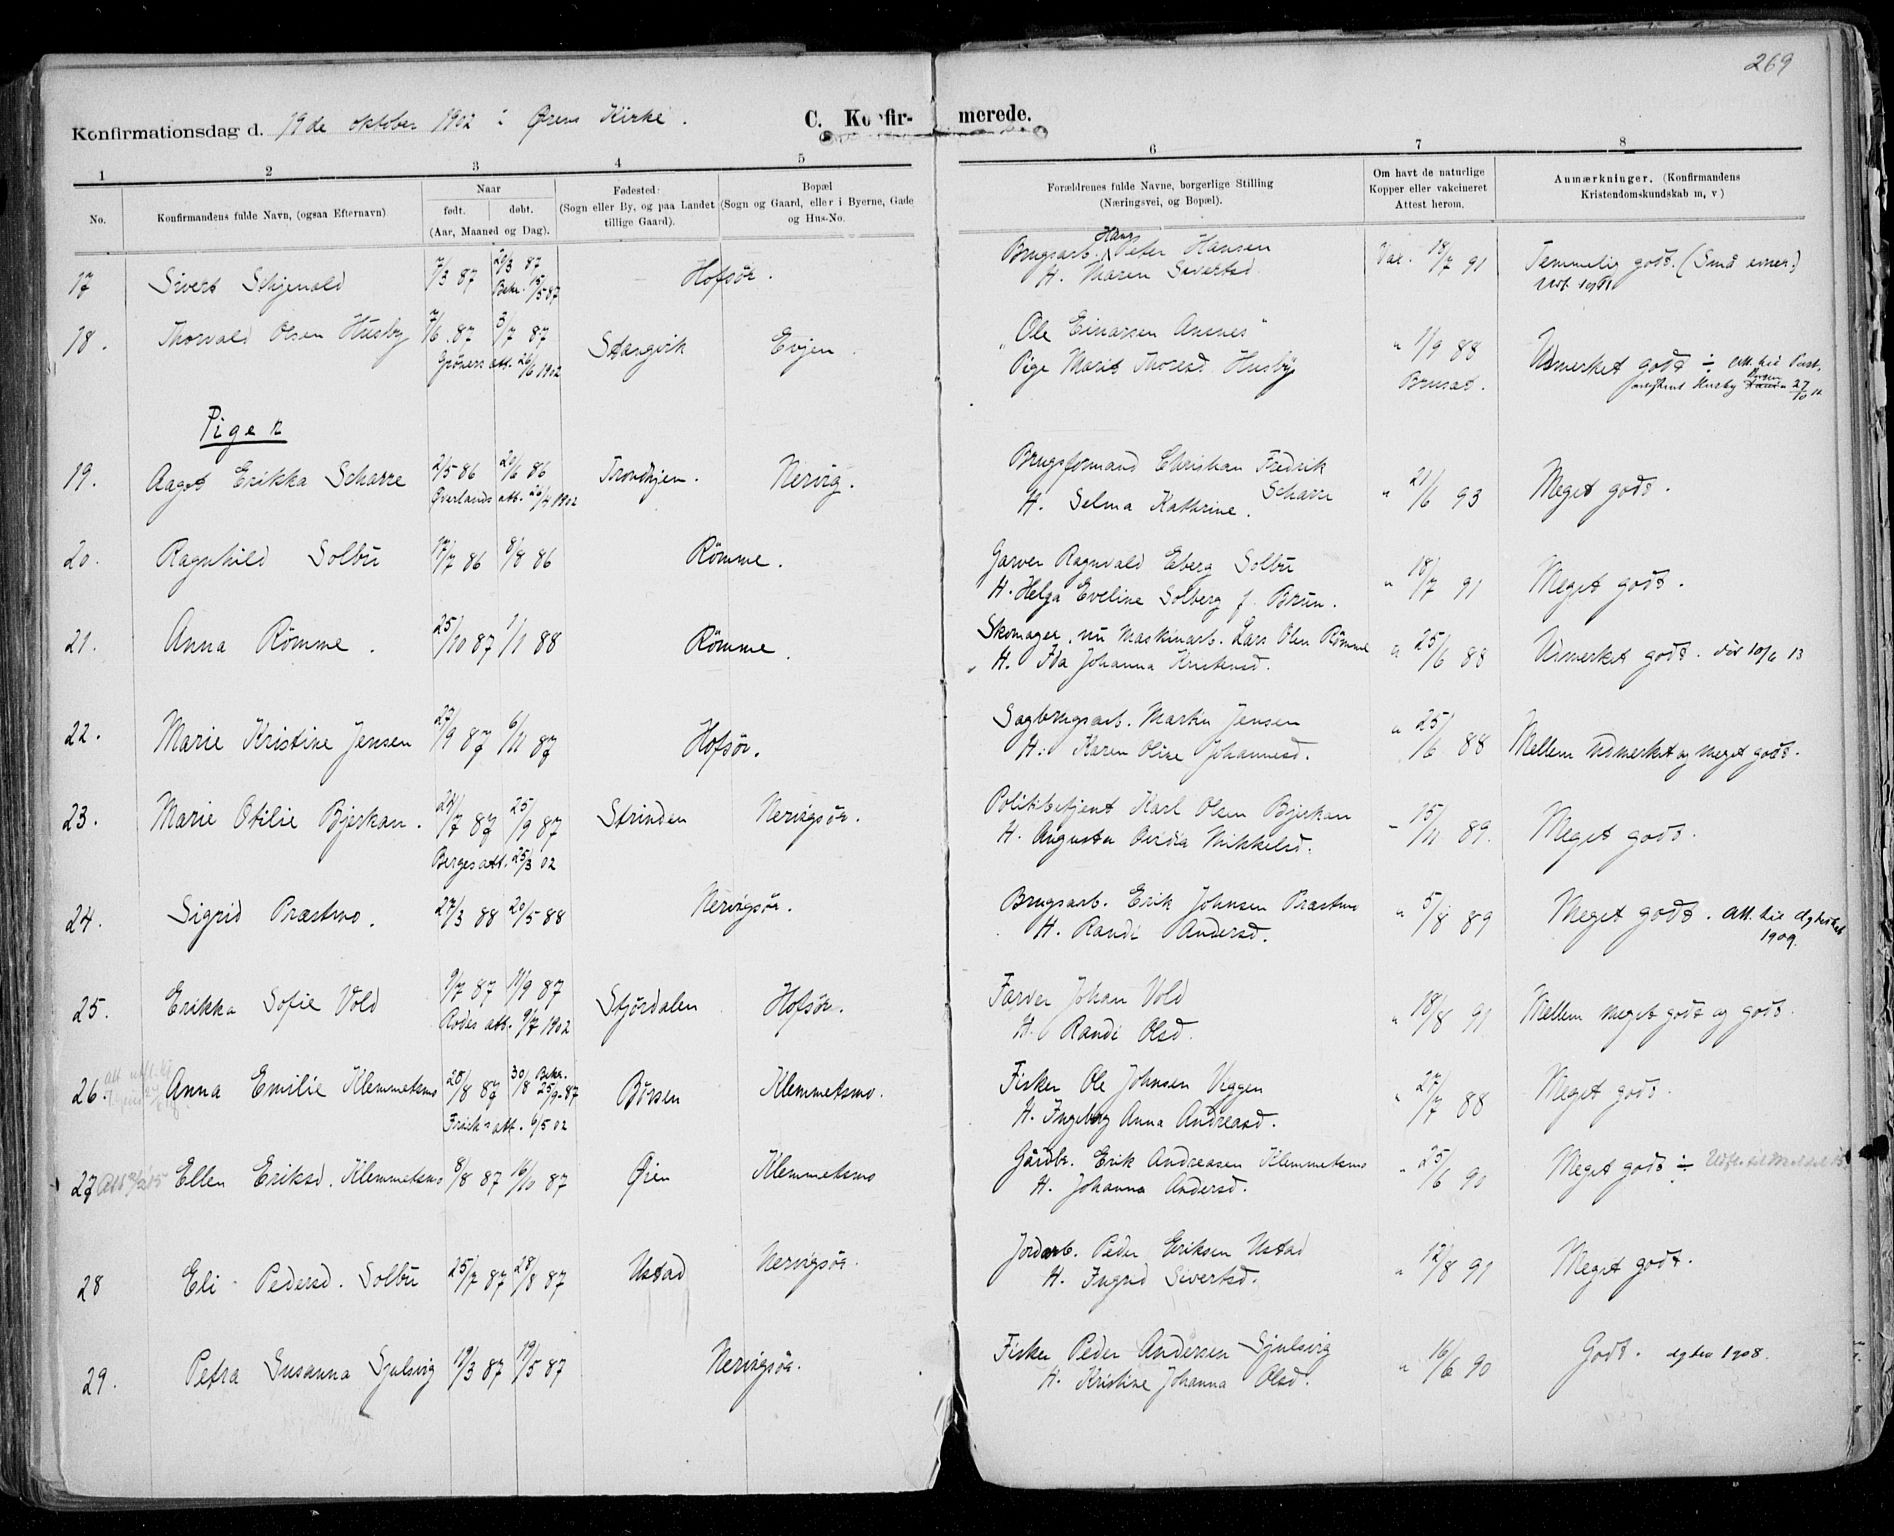 269
Konfirmationsdag d. 19de oktober 1902 i Ørens Kirke.
C. Konfirmerede.
1 2 3 4 5 6 7 8
No.
Konfirmandens fulde Navn, (ogsaa Efternavn)
Naar
født. døbt.
(Aar, Maaned og Dag).
Fødested:
(Sogn eller By, og paa Landet tillige Gaard).
Bopæl
(Sogn og Gaard, eller i Byerne, Gade og Hus-No.
Forældrenes fulde Navne, borgerlige Stilling
(Næringsvei, og Bopæl).
Om havt de naturlige Kopper eller vakcineret Attest herom.
Anmærkninger. (Konfirmandens Kristendomskundskab m, v)
17 Sivert 7/3 87 29/3 87 Hofsör. Brugsarb. Hans Peter Hansen Vax. 18/7 91 Temmelig godt. (Små evner.)
Bekr. 15/5 87 H. Maren Sivertsd.
18. Thorvald Olsen Husby 7/6 87 3/7 87 Stangvik Evjen. „Ole Einarsen Aasnes" " 1/9 88 Udmerket godt ÷
Gröners att. 26/6 1902 Pige Marit Thoresd Husby
Piger
19. Aagot Erikka Scharre 2/5 86 20/6 86 Trondhjem. Nervig. Brugsformand Christian Fredrik Scharre " 21/6 93 Meget godt.
Överlands att. 26/4 1902 H. Selma Kathrine.
20. Ragnhild Solbu 17/7 86 8/8 86 Römme. Garver Ragnvald Eberg Solbu " 18/7 91 Meget godt.
H. Helga Eveline Solberg f. Brun.
21. Anna Römme. 25/10 87 1/1 88 Römme. Skomager, nu Maskinarb. Lars Olsen Römme " 25/6 88 Udmerket godt. Dör 10/6 13
H. Ida Johanna Kristensd.
22. Marie Kristine Jensen 27/9 87 6/11 87 Hofsör. Sagbrugsarb. Martin Jensen " 25/6 88 Mellem Udmerket og meget godt.
H. Karen Oline Johannesd.
23. Marie Otilie Bjerkan. 24/7 87 25/9 87 Strinden Nervigsör. Politibetjent Karl Olsen Bjerkan " 15/11 89. Meget godt.
Berges att. 25/3 02 H. Augusta Mikkelsd.
24. Sigrid Præstmo. 27/3 88 20/5 88 Nervigsör. Brugsarb. Erik Johnsen Præstmo " 5/8 89 Meget godt. Att. til
1909.
H. Randi Andersd.
25. Erikka Sofie Vold 9/7 87 11/9 87 Stjördalen Hofsör. Farver Johan Vold " 18/8 91 Mellem meget godt og godt.
Rodes att. 9/7 1902 H. Randi Olsd.
26. Anna Emilie Klemmetsmo 28/8 87 30/8 Bekr. 25/9 87 Börsen Klemmetsmo. Fisker Ole Johnsen Viggen " 27/7 88 Meget godt.
att. 6/5 02 H. Ingeborg Anna Andreasd.
27 Ellen Eriksd. Klemmetsmo 8/8 87 16/10 87 Öien Klemmetsmo Gårdbr. Erik Andreasen Klemmetsmo " 25/6 90 Meget godt ÷
H. Johanna Andersd.
28 Eli Pedersd. Solbu 25/7 87 28/8 87 Ustad Nervigsör. Jordarb. Peder Eriksen Ustad " 12/8 91 Meget godt.
H. Ingrid Sivertsd.
29. Petra Susanna Sjulsvig 19/3 87 19/5 87 Nervigsör. Fisker Peder Andersen Sjulsvig " 16/6 90 Godt. 1908.
H. Kristine Johanna Olsd.